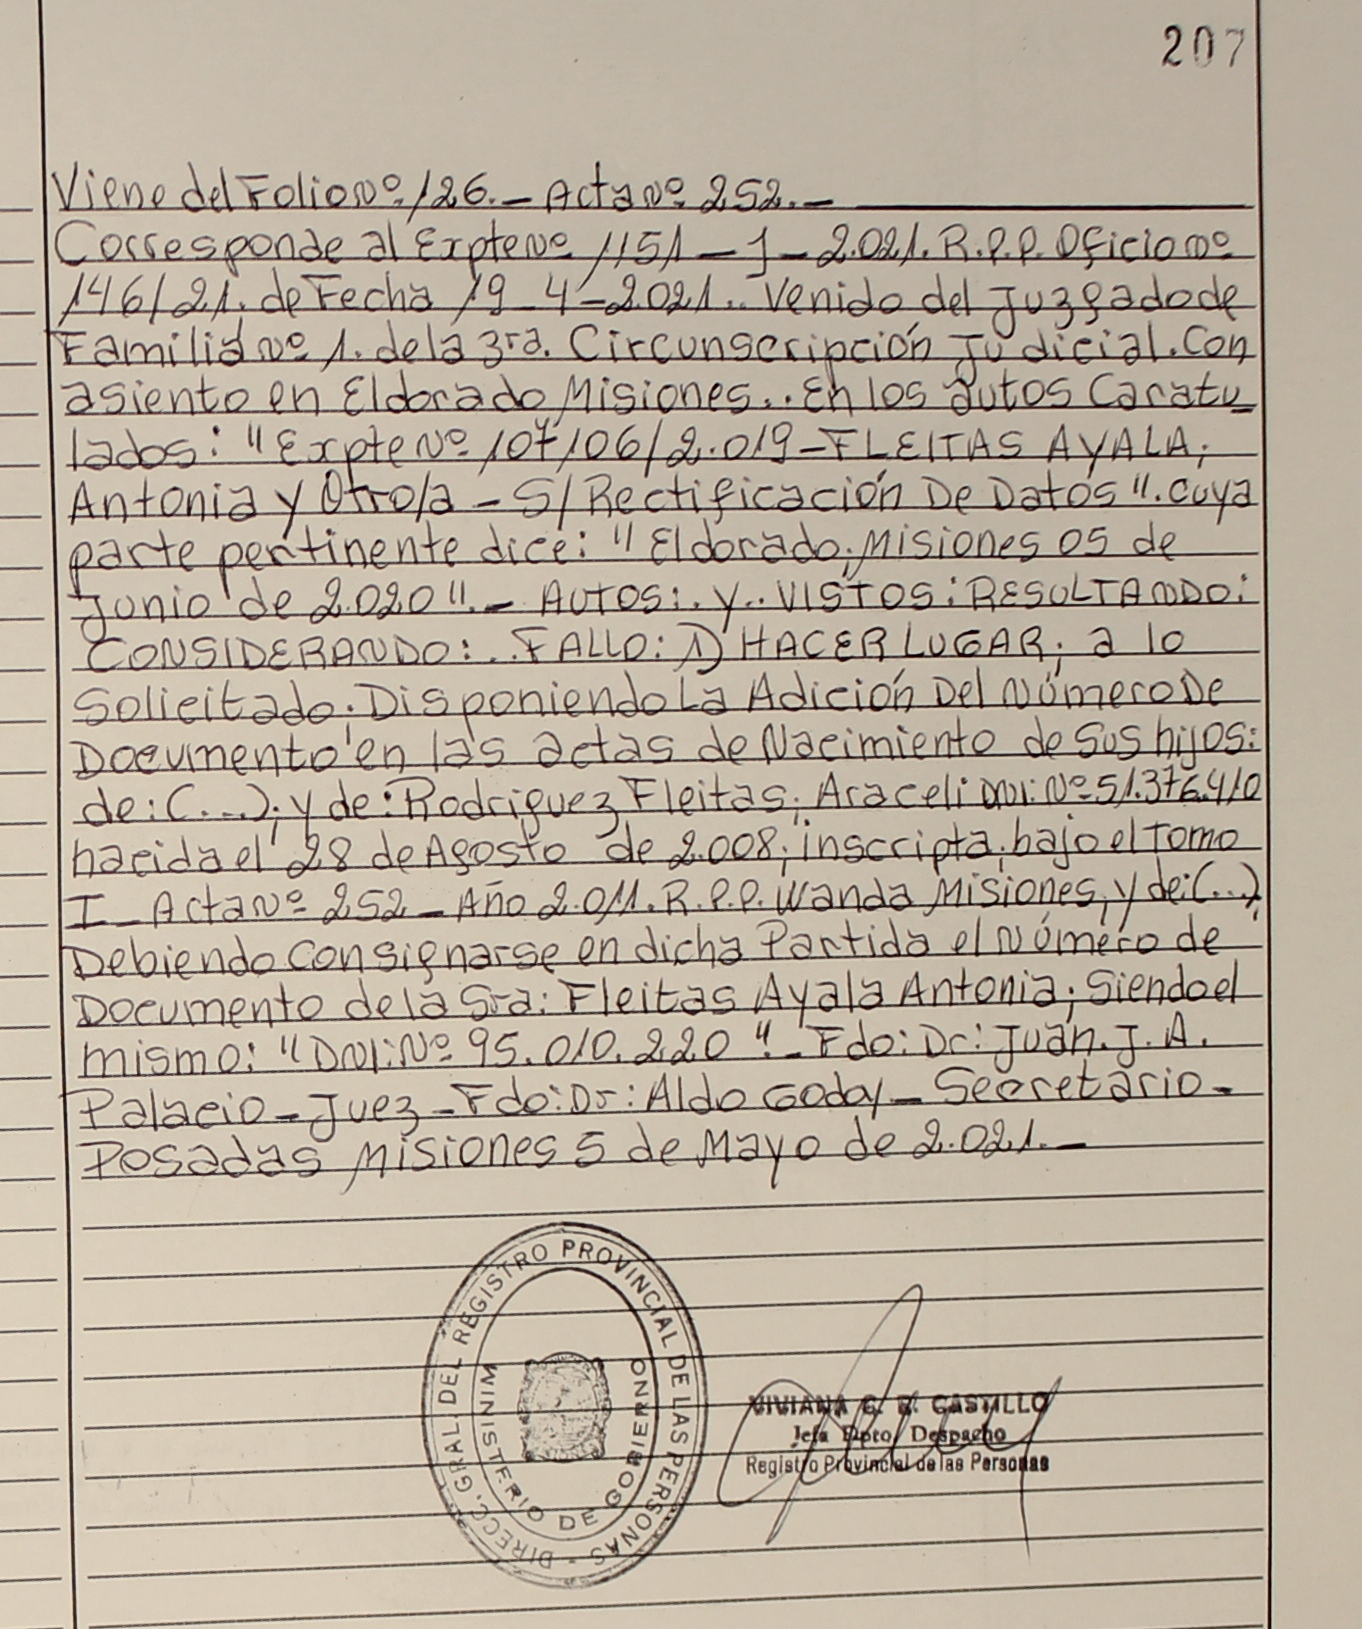 207
Viene del Folio Nº 126.- Acta Nº 252.-
Corresponde al Expte Nº 1151-J-2.021. R.P.P. Oficio Nº
146/21. de Fecha 19-4-2021.. Venido del Juzgado de
Familia Nº 1. de la 3ra. Circunscripción Judicial. Con
asiento en Eldorado Misiones.. En los autos Caratu_
lados: "Expte Nº 107106/2.019-FLEITAS AYALA;
Antonia y Otro/a - S/Rectificación De Datos". cuya
parte pertinente dice: "Eldorado; Misiones 05 de
Junio de 2.020".- AUTOS:. y.. VISTOS: RESULTANDO:
CONSIDERANDO:.. FALLO: 1) HACER LUGAR; a lo
Solicitado; Disponiendo La Adición Del Número De
Documento en las actas de Nacimiento de Sus hijos:
de: (...); y de: Rodriguez Fleitas; Araceli DNI: Nº 51.376.410
nacida el 28 de Agosto de 2.008; inscripta; bajo el Tomo
I - Acta Nº 252 - Año 2.011. R.P.P. Wanda Misiones, y de: (...)
Debiendo Consignarse en dicha Partida el Número de
Documento de la Sra: Fleitas Ayala Antonia; Siendo el
mismo: "DNI: Nº 95.010.220".- Fdo: Dr: Juan. J. A.
Palacio - Juez - Fdo: Dr: Aldo Goday - Secretario -
Posadas Misiones 5 de Mayo de 2.021.-
DIRECC. GRAL. DEL REGISTRO PROVINCIAL DE LAS PERSONAS -
MINISTERIO DE GOBIERNO
VIVIANA CASTILLO
Jefa Dpto. Despacho
Registro Provincial de las Personas